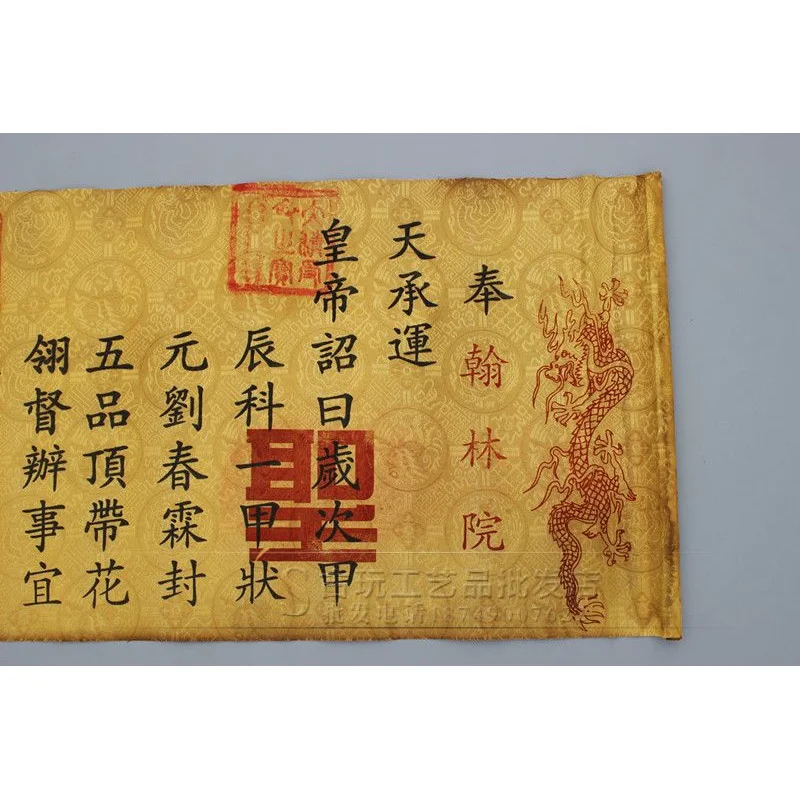 奉
翰林院
天承運
皇帝詔曰歲次甲
辰科一甲狀
元劉春霖封
五品頂帶花
翎督辦事宜
玩工艺品批发店
批发电话